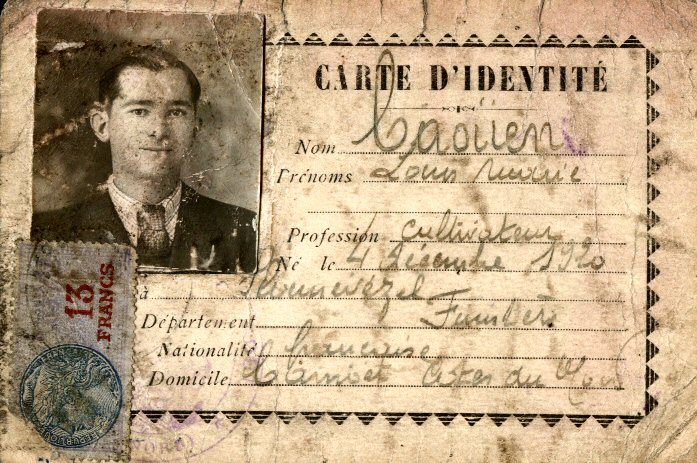 CARTE D'IDENTITÉ
Nom Caouën
Prénoms Louis Marie
Profession cultivateur
Né le 4 Décembre 1920
à Plounevézel
Département Finistère
Nationalité Française
Domicile Côtes du Nord
13
FRANCS